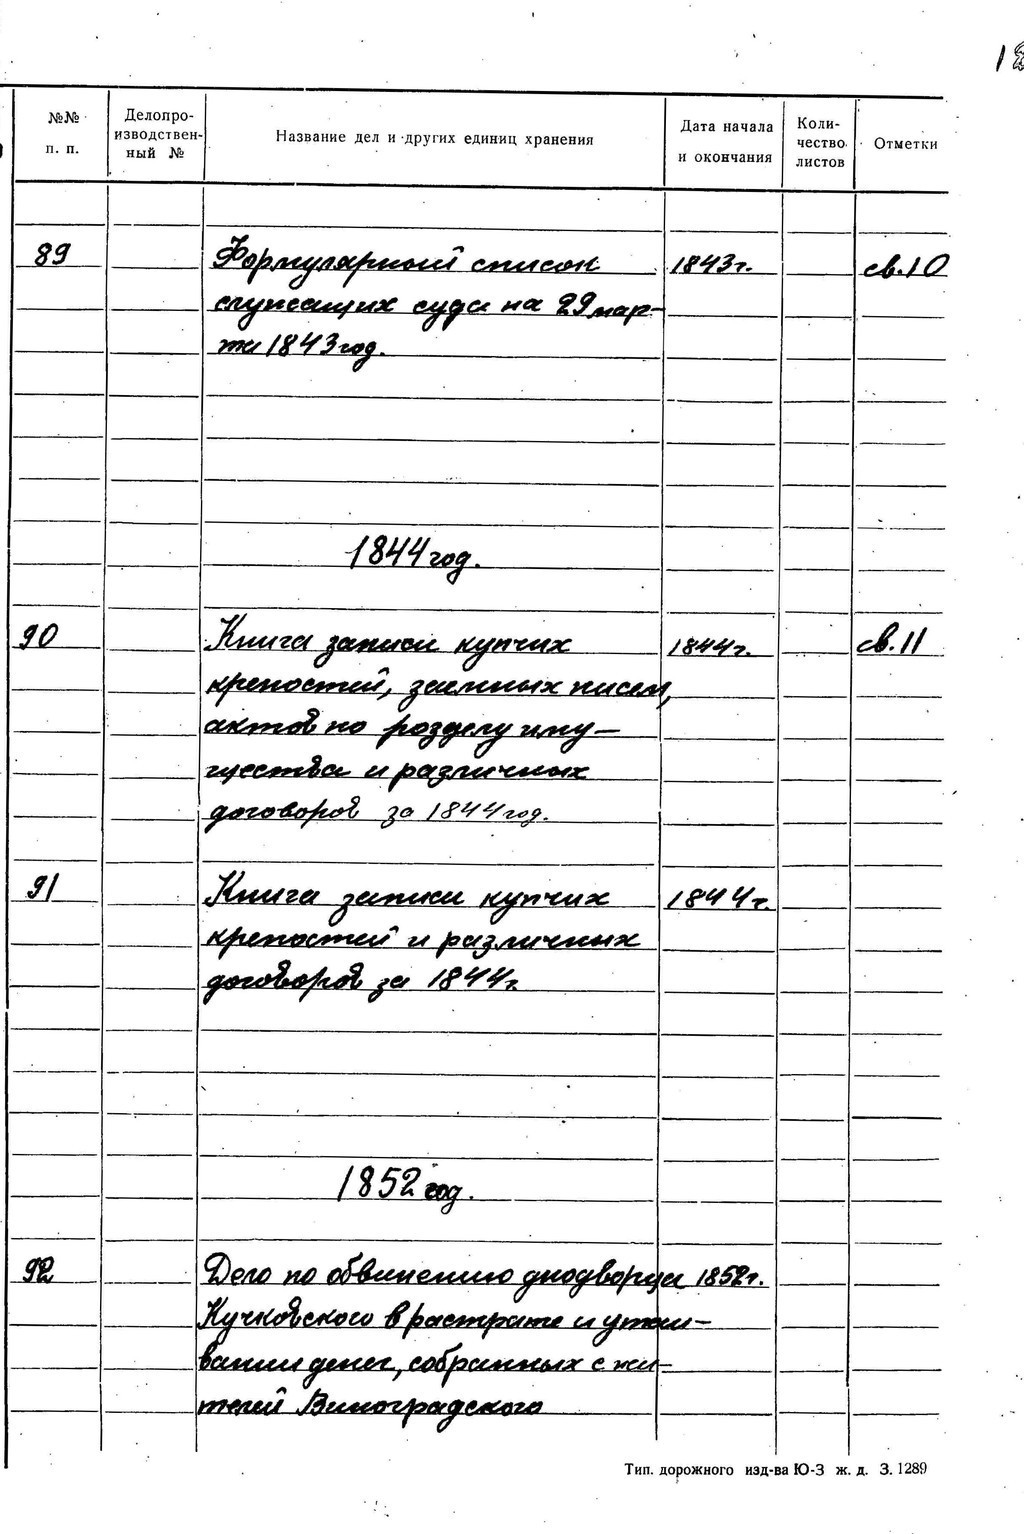 №№ п. п. Делопроизводственный № Название дел и других единиц хранения Дата начала и окончания Количество листов Отметки
89 Формулярный список 1843г. св.10
служащих суда на 29 мар-
та 1843 год.
1844 год.
90 Книга записи купчих 1844г. св.11
крепостей, заемных писем,
актов по розделу иму-
щества и различных
договоров за 1844 год.
91 Книга записи купчих 1844г.
крепостей и различных
договоров за 1844г.
1852 год.
92 Дело по обвинению днодворца 1852г.
Кучковского в растрате и утаи-
вании денег, собранных с жи-
телей Виноградского
Тип. дорожного изд-ва Ю-З ж. д. З. 1289